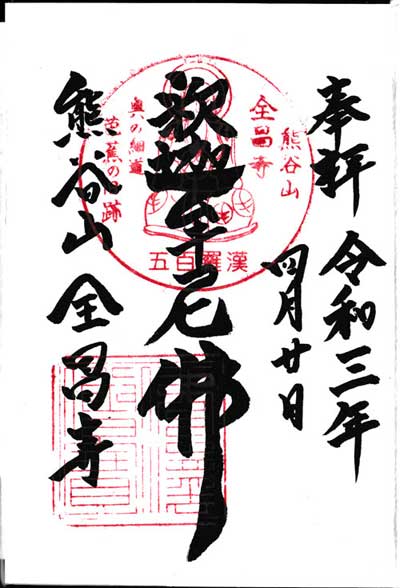 奉拝 令和三年
四月廿日
釈迦牟尼佛
熊谷山 全昌寺
熊谷山
全昌寺
奥の細道
芭蕉の 跡
五百羅漢